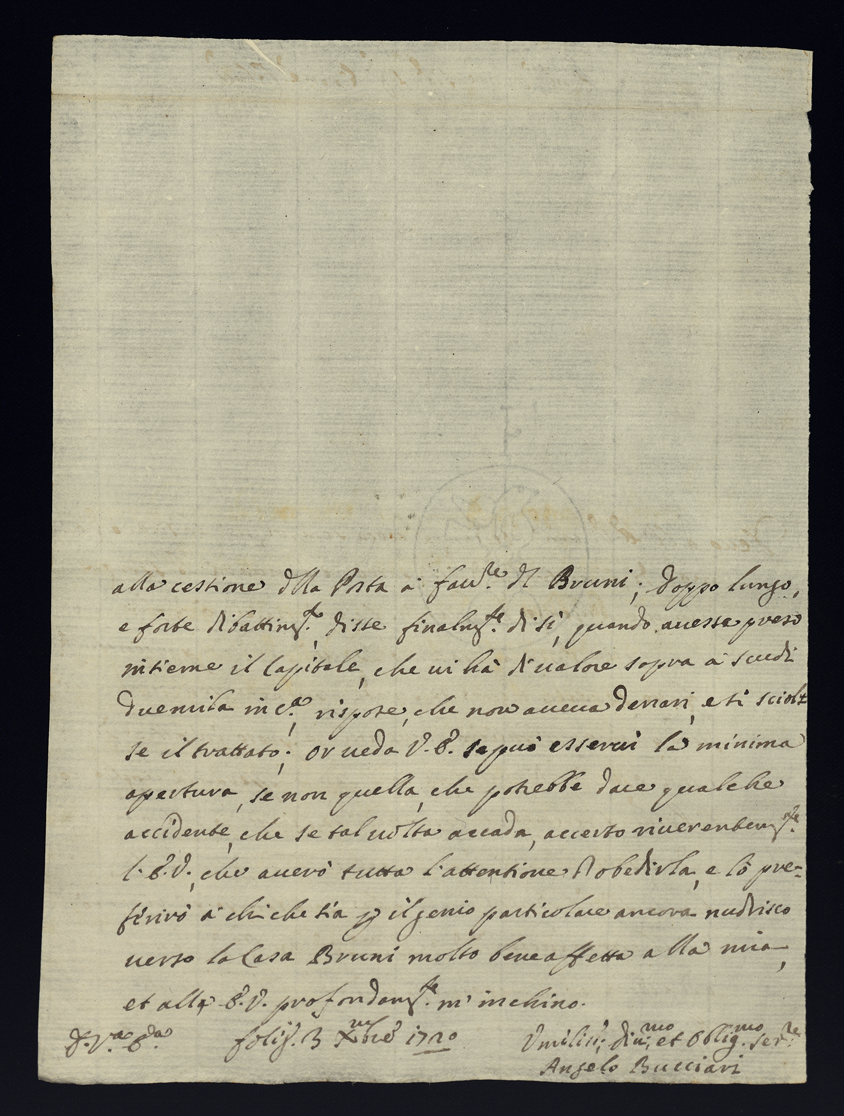 alla cessione della Posta à fau.re del Bruni; doppo lungo,
e forte dibattim.to, disse finalm.te di sì, quando auesse preso
insieme il Capitale, che ui hà di ualore sopra à scudi
duemila in c.a, rispose, che non aueua denari, e si sciolse
se il trattato; or ueda V.E. se può esserui la minima
apertura, se non quella, che potrebbe dare qualche
accidente, che se tal uolta accada, accerto riuerentem.te
l'E.V., che auerò tutta l'attentione d'obedirla, e lò pre=
ferirò à chi che sia p il genio particolare ancora nudrisco
uerso la Casa Bruni molto bene affetta alla mia,
et alla E.V. profondam.te m'inchino.
Folig. 3 Xmbre 1720
Vmilis.o, diu.mo, et Oblig.mo ser.re
Angelo Bucciari